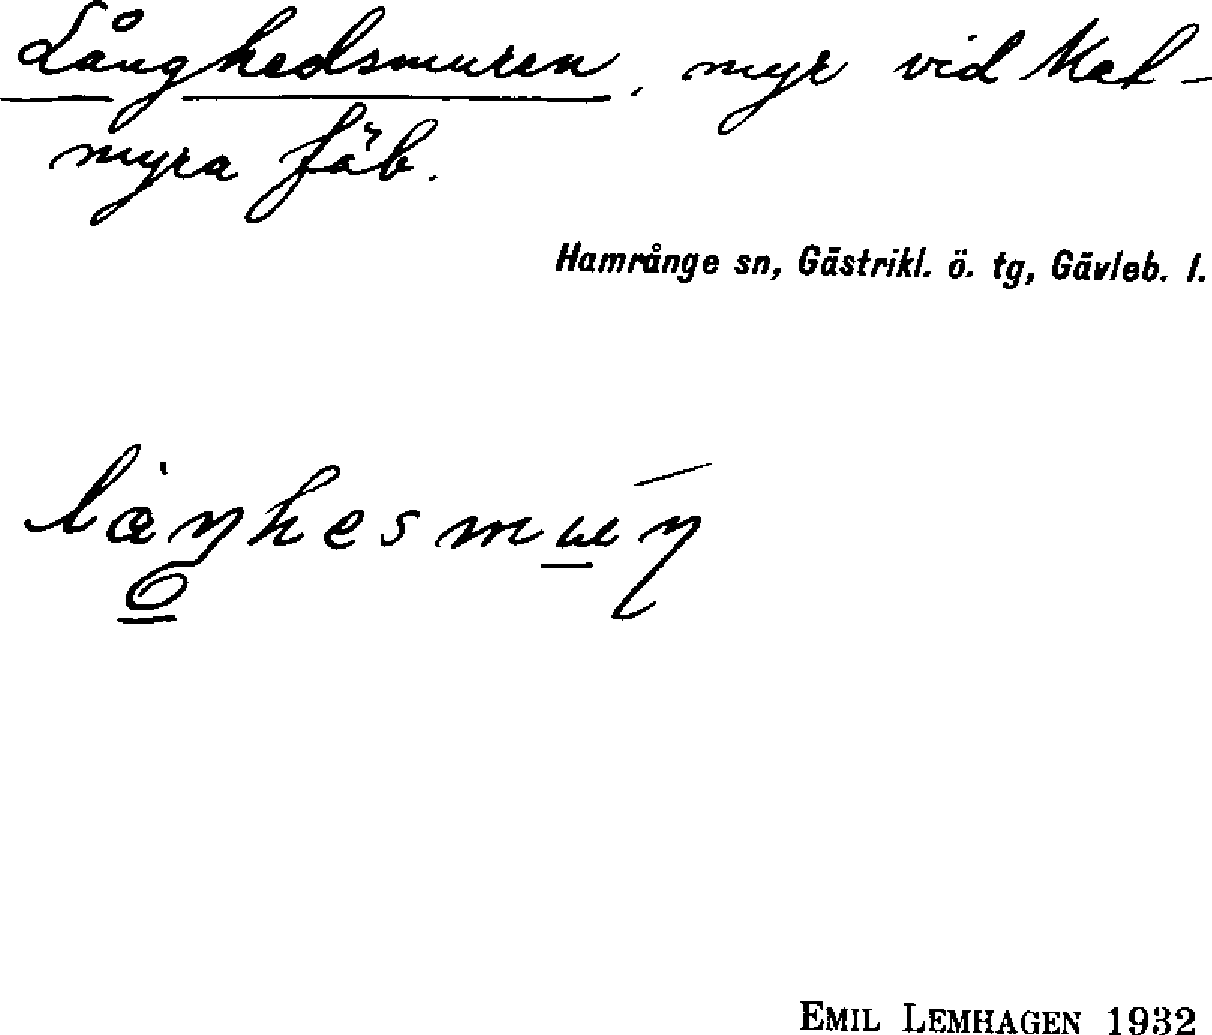 Långhedsmuren. myr vid Kal-
myra fäb.
Hamrånge sn, Gästrikl. ö. tg, Gävleb. l.
EMIL LEMHAGEN 1932